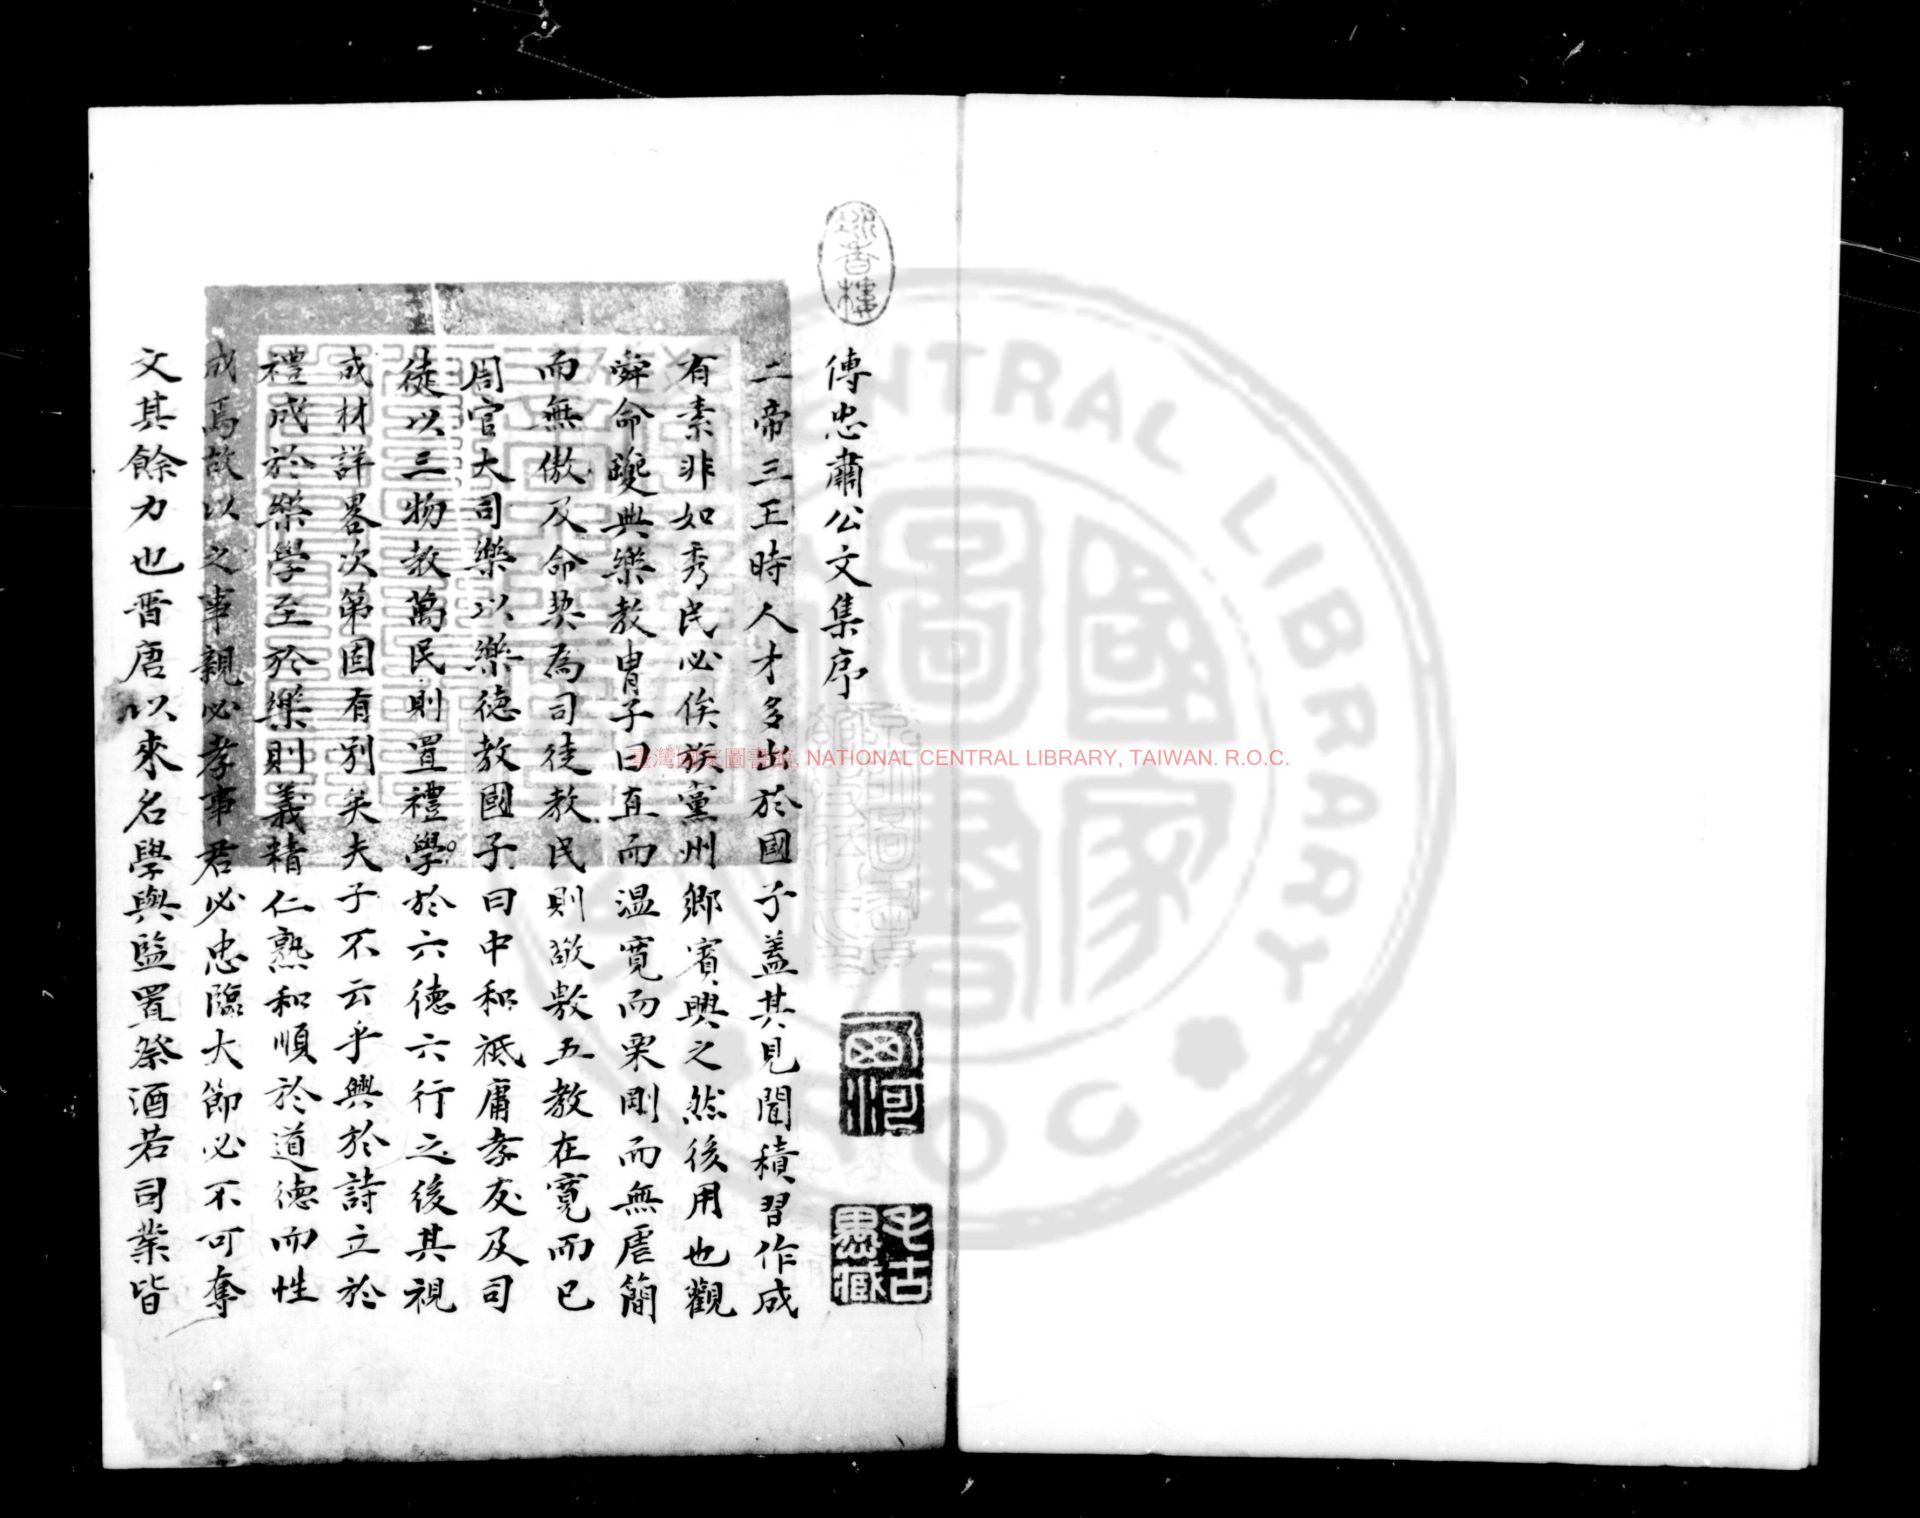 傳忠肅公文集序
二帝三王時人才多出於國子蓋其見聞積習作成
有素非如秀民必俟族黨州鄉賓興之然後用也觀
舜命夔典樂教冑子曰直而温寬而栗剛而無虐簡
而無傲及命契為司徒教民則敬敷五教在寬而已
周官大司樂以樂德教國子曰中和祗庸孝友及司
徒以三物教萬民則置禮學於六德六行之後其視
成材詳畧次第固有別矣夫子不云乎興於詩立於
禮成於樂學至於樂則義精仁熟和順於道德而性
成焉故以之事親必孝事君必忠臨大節必不可奪
文其餘力也晋唐以來名學與監置祭酒若司業皆
臺灣國家圖書館, NATIONAL CENTRAL LIBRARY, TAIWAN. R.O.C.
CENTRAL LIBRARY
R.O.C.
國家圖書
西河
毛古愚藏